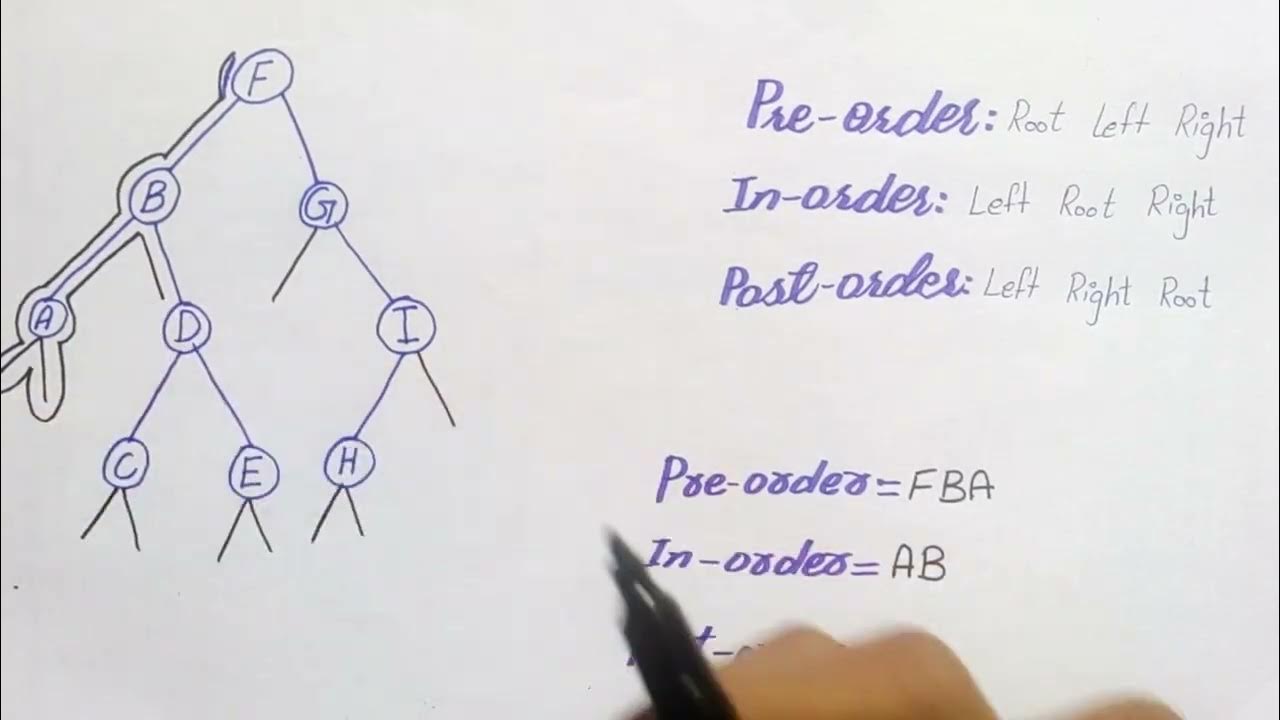 F
B
G
A
D
I
C
E
H
Pre-order: Root Left Right
In-order: Left Root Right
Post-order: Left Right Root
Pre-order = FBA
In-order = AB